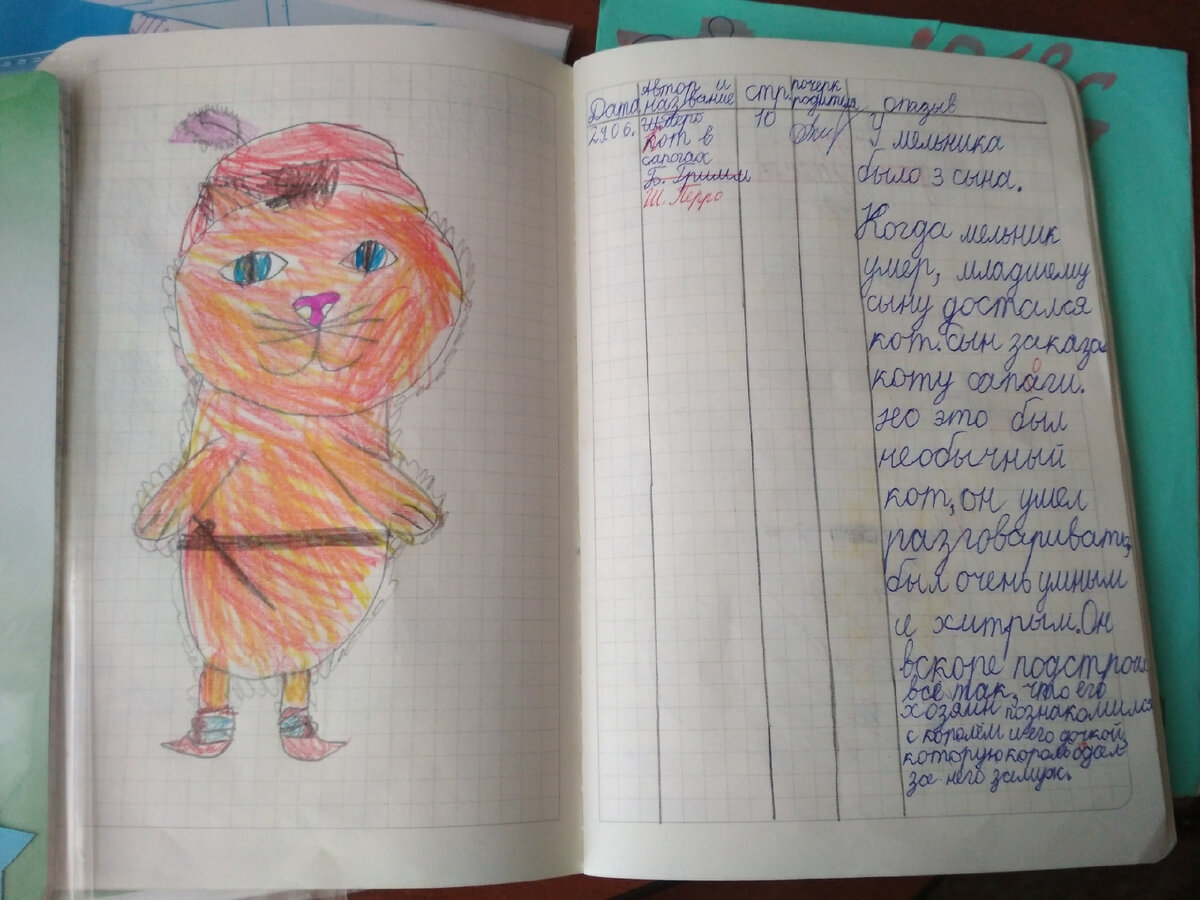 Дата
Автор и
название
стр.
почерк
родителя
отзыв
29.06.
Ш. Перро
Кот в
сапогах
Б. Гримм
Ш. Перро
10
У мельника
было 3 сына.
Когда мельник
умер, младшему
сыну достался
кот. сын заказал
коту сапаги.
о
но это был
необычный
кот, он умел
разговаривать,
был очень умным
и хитрым. Он
вскоре подстроил
всё так, что его
хозяин познакомился
с королём и его дочкой,
которую король отдал
за него замуж.